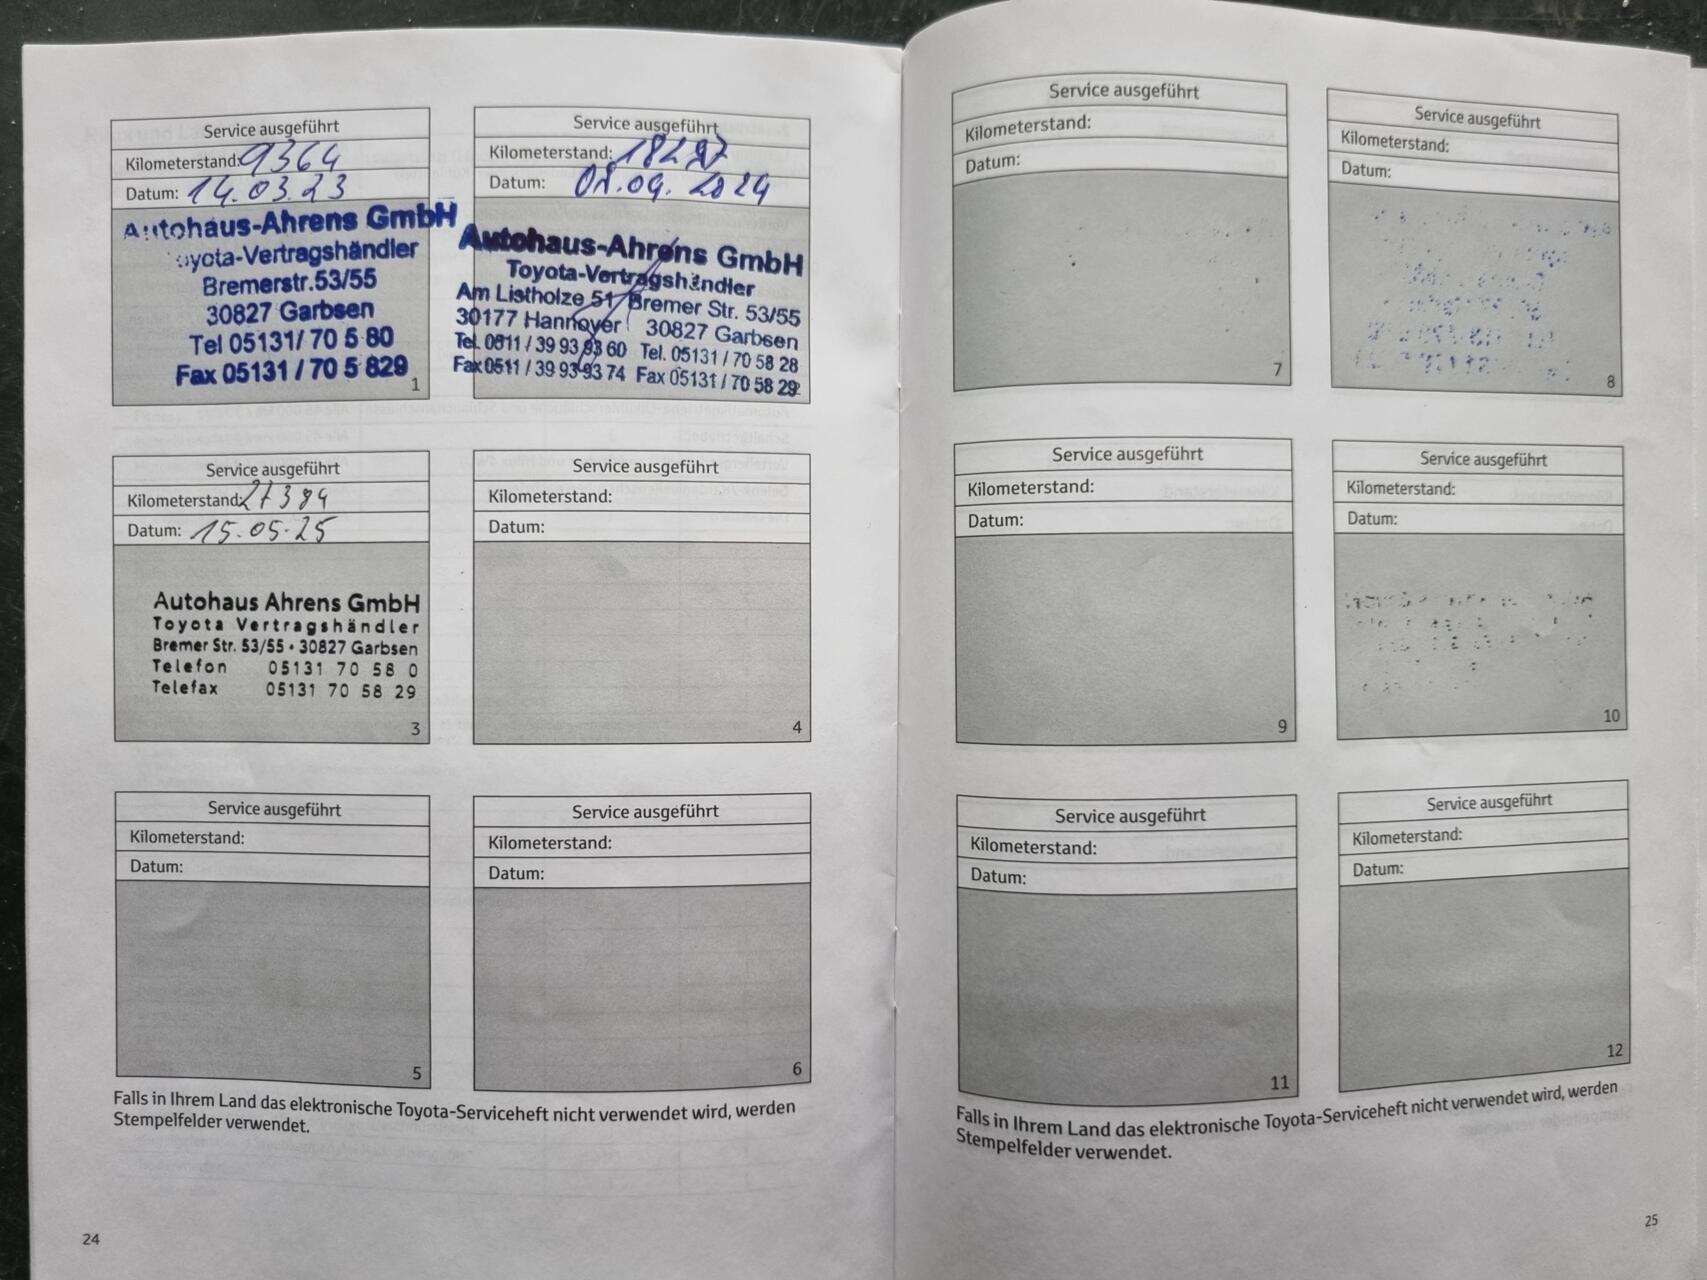 Service ausgeführt
Kilometerstand: 9364
Datum: 14.03.23
Autohaus-Ahrens GmbH
Toyota-Vertragshändler
Bremerstr.53/55
30827 Garbsen
Tel 05131/ 70 5 80
Fax 05131 / 70 5 829
1
Service ausgeführt
Kilometerstand:
Datum: 2024
Autohaus-Ahrens GmbH
Toyota-Vertragshändler
Am Listholze 51 Bremer Str. 53/55
30177 Hannover 30827 Garbsen
Tel. 0511 / 39 93 93 60 Tel. 05131 / 70 58 28
Fax 0511 / 39 93 93 74 Fax 05131 / 70 58 29
Service ausgeführt
Kilometerstand: 27384
Datum: 15.05.25
Autohaus Ahrens GmbH
Toyota Vertragshändler
Bremer Str. 53/55 • 30827 Garbsen
Telefon 05131 70 58 0
Telefax 05131 70 58 29
3
Service ausgeführt
Kilometerstand:
Datum:
4
Service ausgeführt
Kilometerstand:
Datum:
5
Service ausgeführt
Kilometerstand:
Datum:
6
Falls in Ihrem Land das elektronische Toyota-Serviceheft nicht verwendet wird, werden
Stempelfelder verwendet.
24
Service ausgeführt
Kilometerstand:
Datum:
7
Service ausgeführt
Kilometerstand:
Datum:
8
Service ausgeführt
Kilometerstand:
Datum:
9
Service ausgeführt
Kilometerstand:
Datum:
10
Service ausgeführt
Kilometerstand:
Datum:
11
Service ausgeführt
Kilometerstand:
Datum:
12
Falls in Ihrem Land das elektronische Toyota-Serviceheft nicht verwendet wird, werden
Stempelfelder verwendet.
25